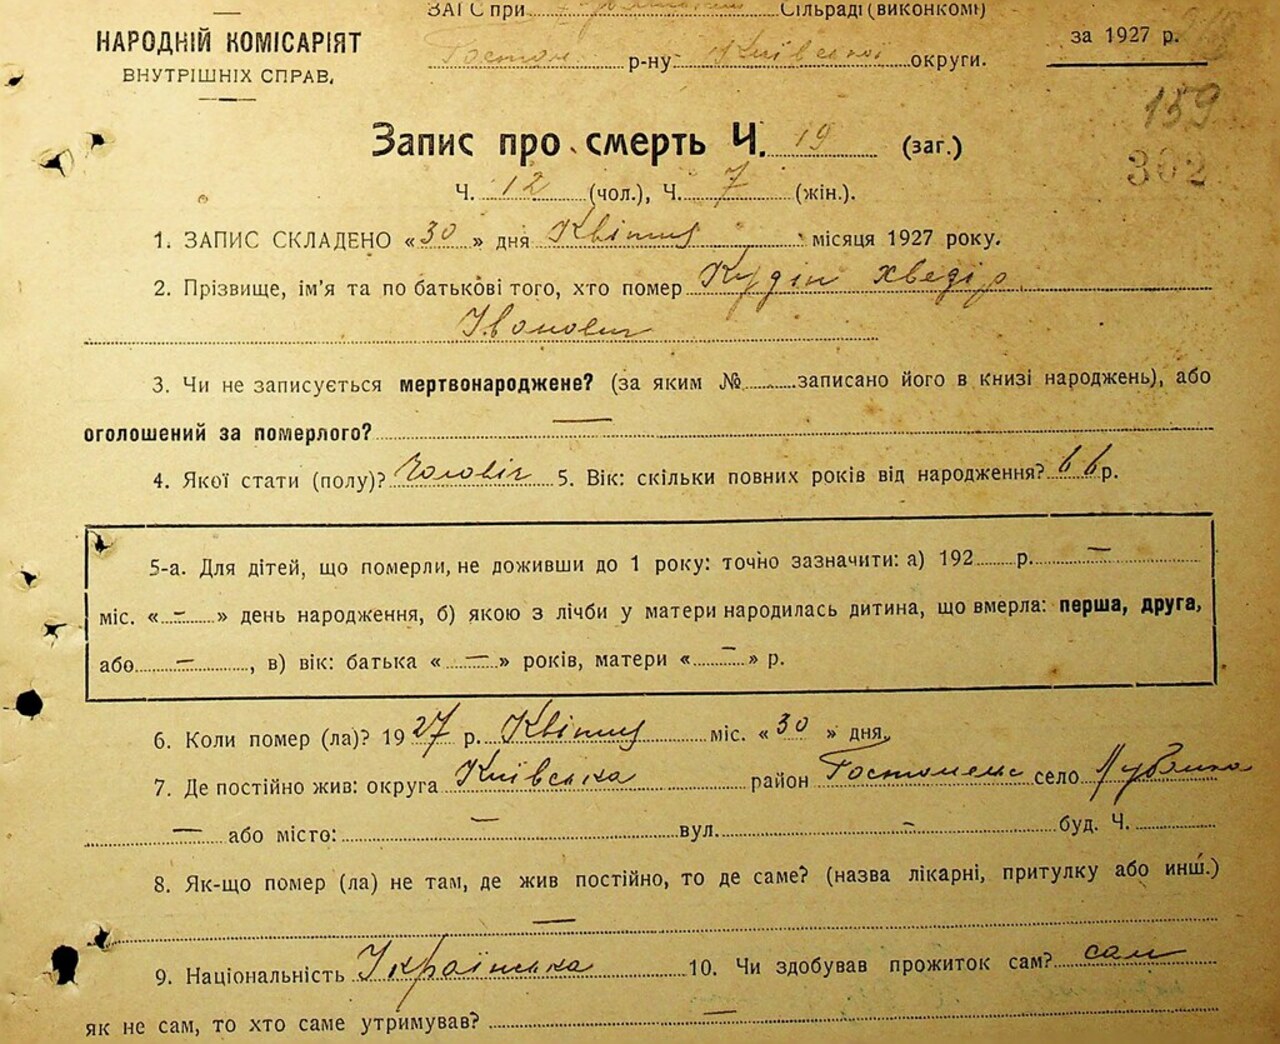 ЗАГС при Сільраді (виконкомі)
НАРОДНІЙ КОМІСАРІЯТ
ВНУТРІШНІХ СПРАВ.
Гостом р-ну Київської округи.
за 1927 р.
159
302
Запис про смерть Ч. 19 (заг.)
Ч. 12 (чол.), Ч. 7 (жін.).
1. ЗАПИС СКЛАДЕНО «30» дня Квітня місяця 1927 року.
2. Прізвище, ім'я та по батькові того, хто помер Кудін Хведір
Іванович
3. Чи не записується мертвонароджене? (за яким № записано його в книзі народжень), або
оголошений за померлого? —
4. Якої стати (полу)? Чоловіч 5. Вік: скільки повних років від народження? 66 р.
5-а. Для дітей, що померли, не доживши до 1 року: точно зазначити: а) 192 р. —
міс. «—» день народження, б) якою з лічби у матери народилась дитина, що вмерла: перша, друга,
або —, в) вік: батька «—» років, матери «—» р.
6. Коли помер (ла)? 1927 р. Квітня міс. «30» дня.
7. Де постійно жив: округа Київська район Гостомельс село Лубянка
— або місто: — вул. - буд. Ч.
8. Як-що помер (ла) не там, де жив постійно, то де саме? (назва лікарні, притулку або инш.)
—
9. Національність Українська 10. Чи здобував прожиток сам? сам
як не сам, то хто саме утримував? —